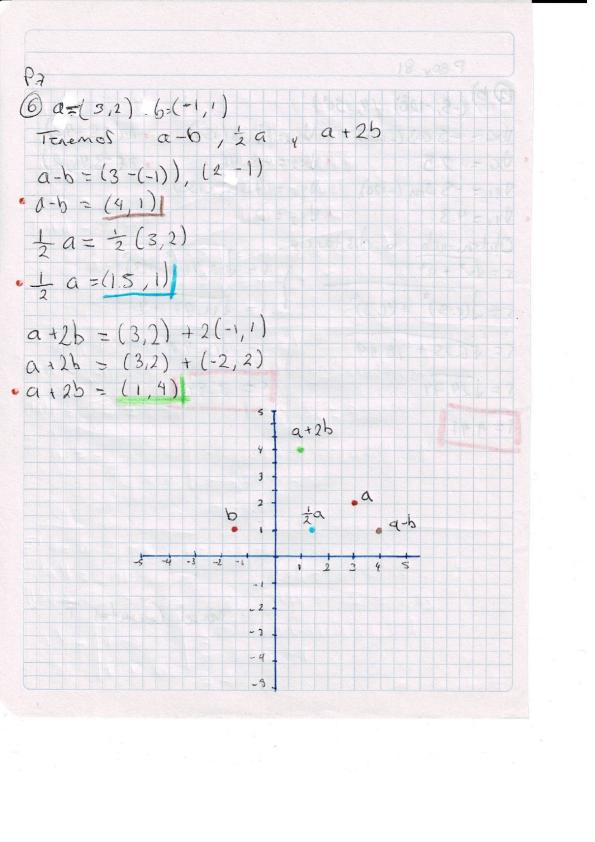 P7
⑥ a=(3,2) . b=(-1,1)
Tenemos a-b, 1/2 a y a+2b
a-b = (3-(-1)), (2-1)
a-b = (4,1)
1/2 a = 1/2 (3,2)
1/2 a = (1.5, 1)
a+2b = (3,2) + 2(-1,1)
a+2b = (3,2) + (-2,2)
a+2b = (1,4)
5
a+2b
4
3
2 a
b 1/2 a a-b
1
-5 -4 -3 -2 -1 1 2 3 4 5
-1
-2
-3
-4
-5